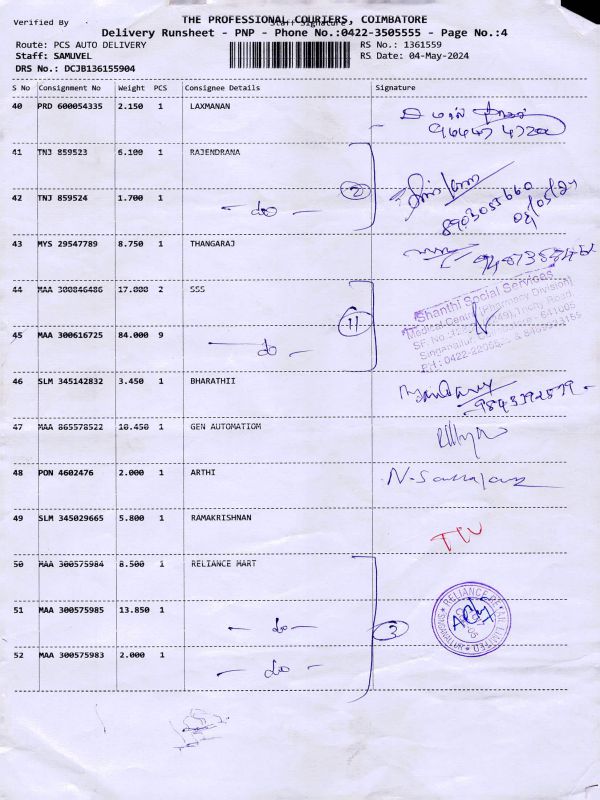 Verified By
Staff Signature
THE PROFESSIONAL COURIERS, COIMBATORE
Delivery Runsheet - PNP - Phone No.:0422-3505555 - Page No.:4
Route: PCS AUTO DELIVERY RS No.: 1361559
Staff: SAMUVEL RS Date: 04-May-2024
DRS No.: DCJB136155904
S No Consignment No Weight PCS Consignee Details Signature
40 PRD 600054335 2.150 1 LAXMANAN
41 TNJ 859523 6.100 1 RAJENDRANA
8903055660
42 TNJ 859524 1.700 1 - do -
2
43 MYS 29547789 8.750 1 THANGARAJ
44 MAA 300846486 17.000 2 SSS
Shanthi Social Services
Medical Centre (Pharmacy Division)
11
45 MAA 300616725 84.000 9 - do -
46 SLM 345142832 3.450 1 BHARATHII
9843392579
47 MAA 865578522 18.450 1 GEN AUTOMATIOM
48 PON 4602476 2.000 1 ARTHI
49 SLM 345029665 5.800 1 RAMAKRISHNAN
50 MAA 300575984 8.500 1 RELIANCE MART
51 MAA 300575985 13.850 1 - do -
3
52 MAA 300575983 2.000 1 - do -